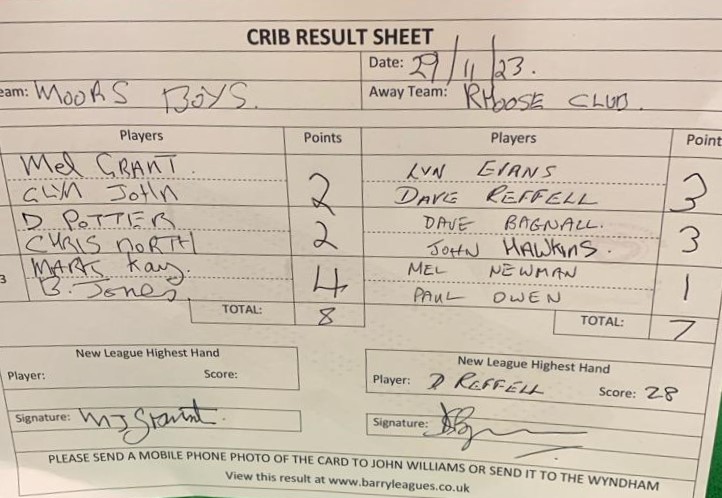 CRIB RESULT SHEET
Date: 29/11/23.
eam: MOORS BOYS.
Away Team: RHOOSE CLUB.
Players Points Players Point
Mel GRANT. LYN EVANS
GLYN JOHN 2 DAVE REFFELL 3
D POTTER DAVE BAGNALL.
CHRIS NORTH 2 JOHN HAWKINS. 3
MARK Kay. MEL NEWMAN
3 B. Jones 4 PAUL OWEN 1
TOTAL: 8 TOTAL: 7
New League Highest Hand
Player: Score:
New League Highest Hand
Player: D REFFELL Score: 28
Signature:
Signature:
PLEASE SEND A MOBILE PHONE PHOTO OF THE CARD TO JOHN WILLIAMS OR SEND IT TO THE WYNDHAM
View this result at www.barryleagues.co.uk